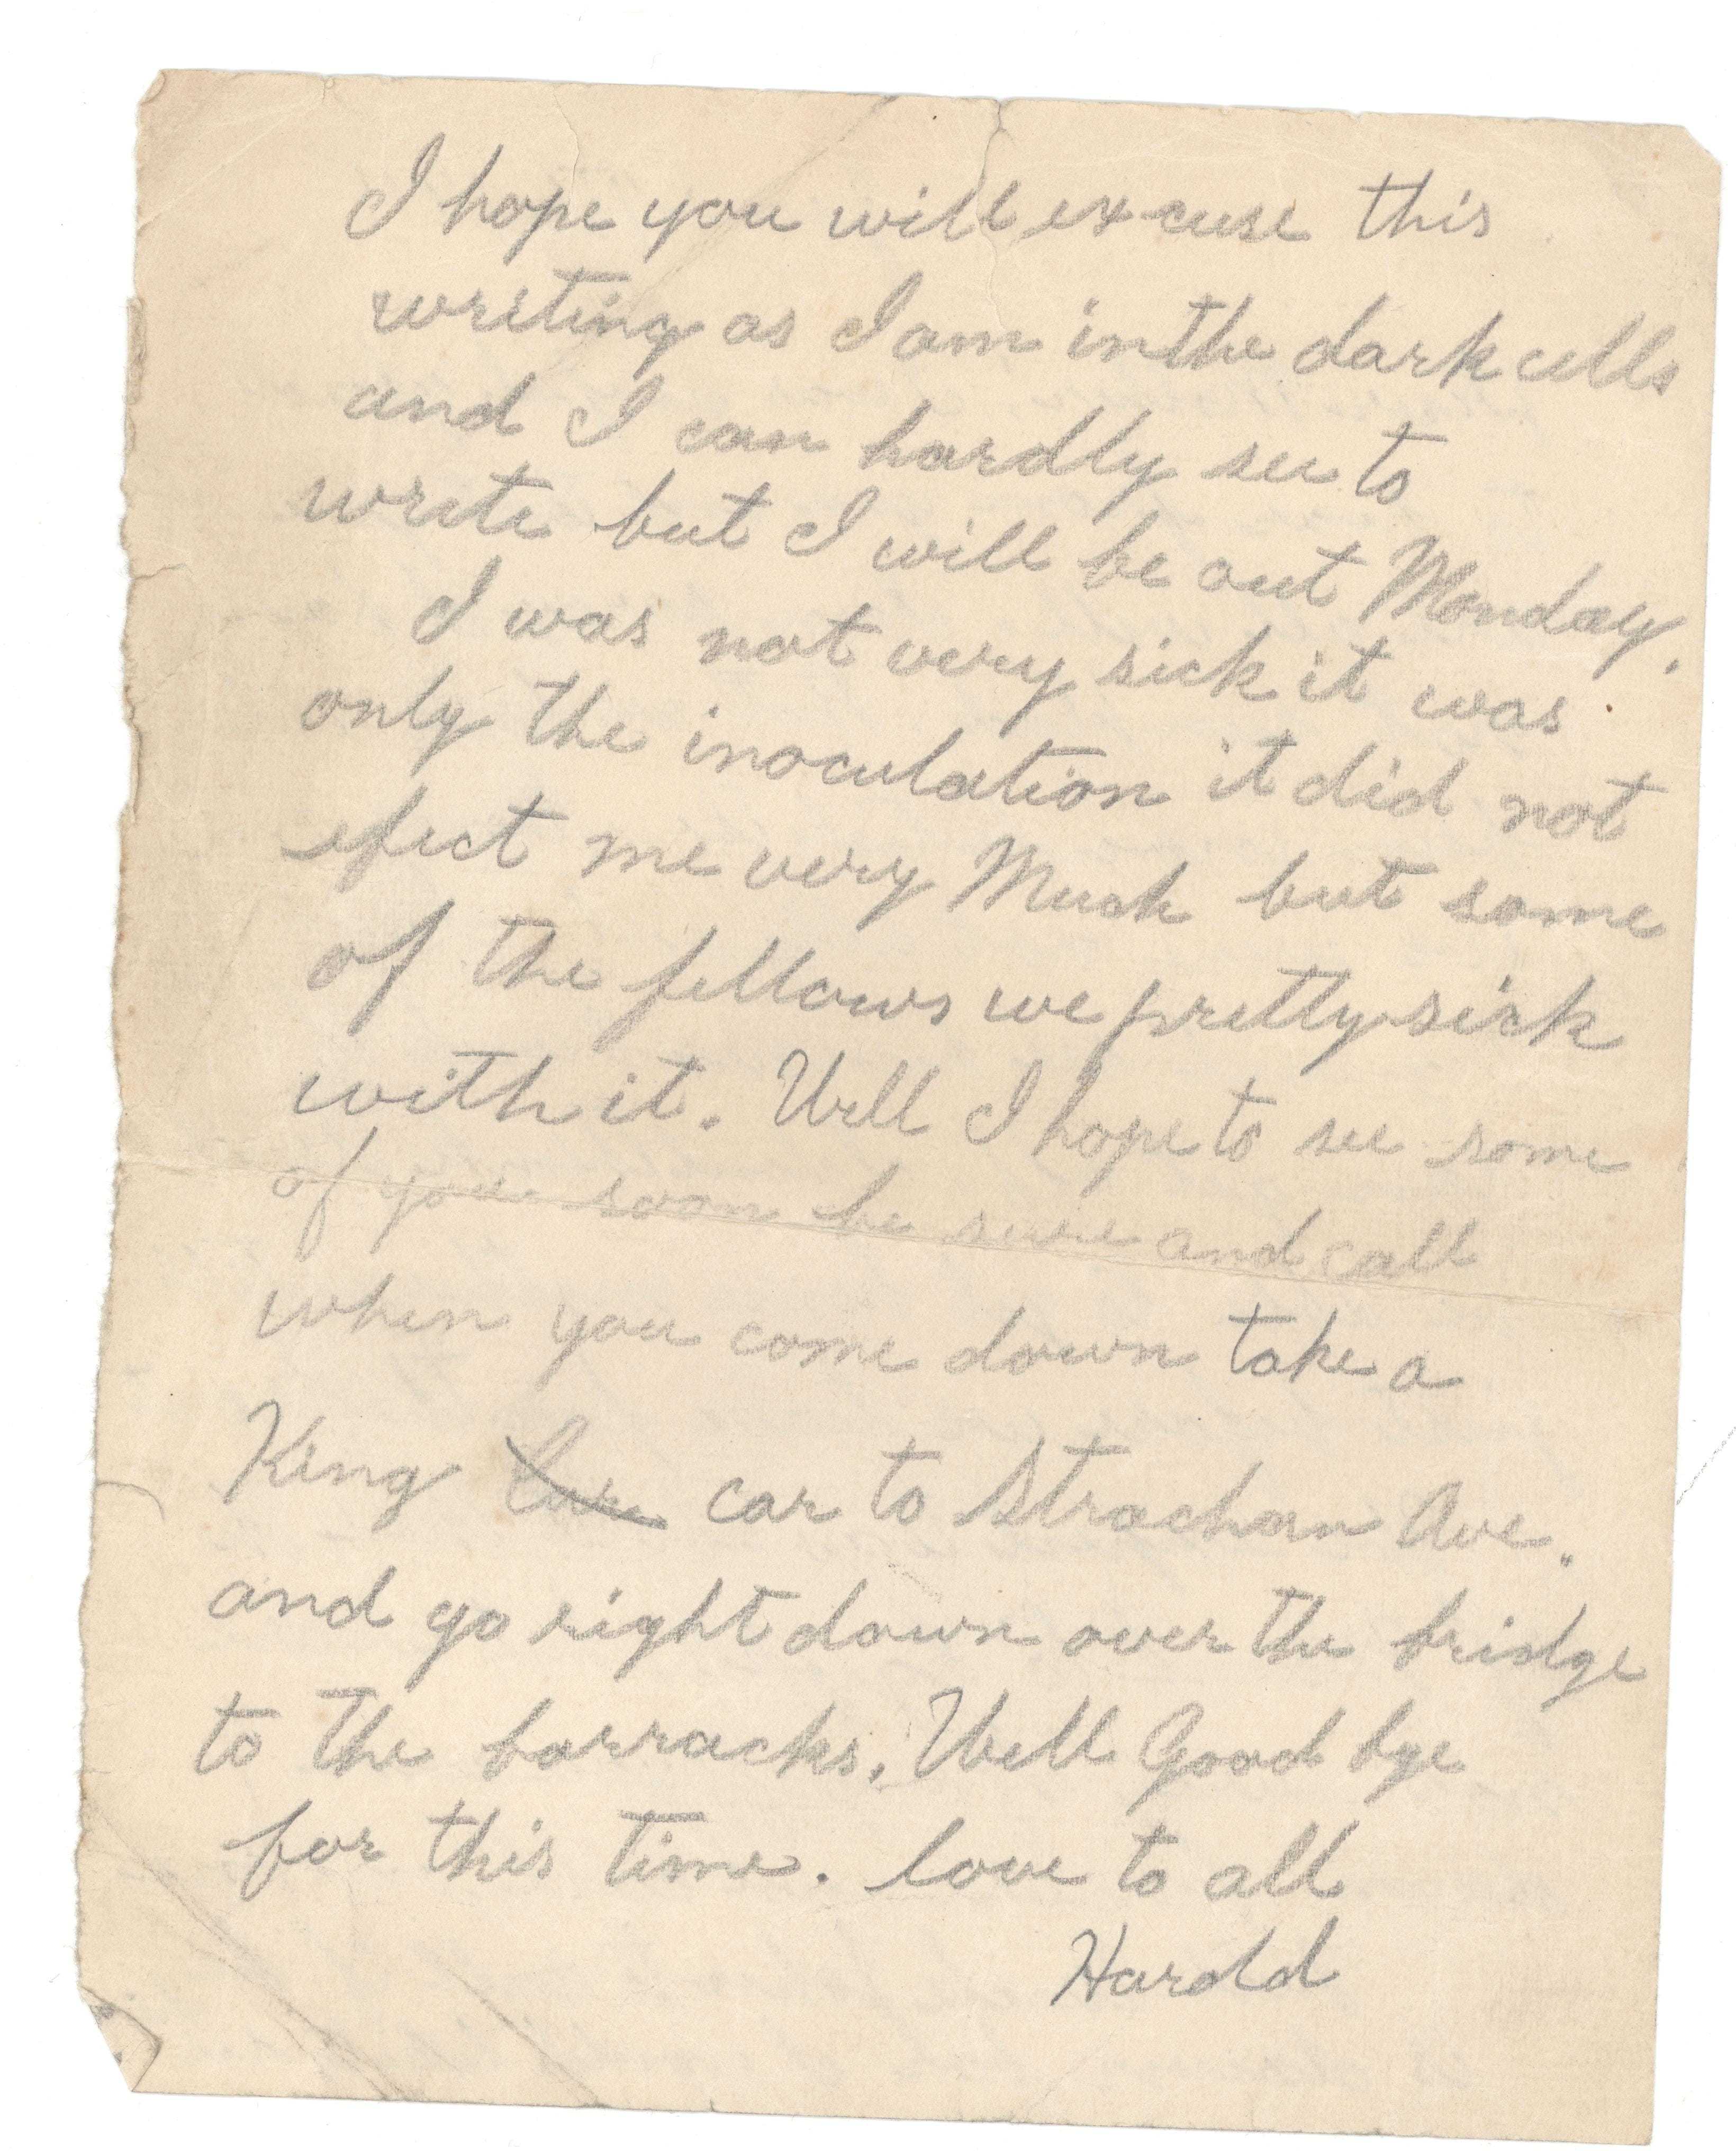 I hope you will excuse this
writing as I am in the dark cells
and I can hardly see to
write but I will be out Monday.
I was not very sick it was
only the inoculation it did not
efect me very Much but some
of the fellows we pretty sick
with it. Well I hope to see some
of you soon be sure and call
when you come down take a
King car to Strachan Ave.
and go right down over the bridge
to the barracks. Well Good bye
for this time. love to all
Harold